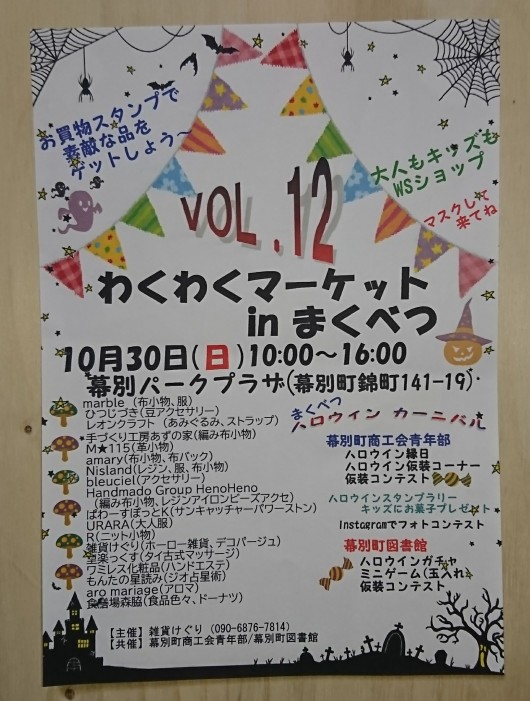 お買物スタンプで
素敵な品を
ゲットしよう～
大人もキッズも
WSショップ
マスクして
来てね
VOL.12
わくわくマーケット
in まくべつ
10月30日(日)10:00～16:00
幕別パークプラザ(幕別町錦町141-19)
marble（布小物、服）
ひつじづき(豆アクセサリー)
レオンクラフト（あみぐるみ、ストラップ）
手づくり工房あずの家(編み布小物)
M★115(革小物)
amary(布小物、布バック)
Nisland(レジン、服、布小物)
bleuciel(アクセサリー)
Handmade Group HenoHeno
（編み布小物、レジンアイロンビーズアクセ）
ぱわーすぽっとK(サンキャッチャーパワーストン)
URARA(大人服)
R(ニット小物)
雑貨けぐり(ホーロー雑貨、デコパージュ)
楽つくす(タイ古式マッサージ)
ワミレス化粧品(ハンドエステ)
もんたの星読み(ジオ占星術)
aro mariage(アロマ)
食酒場森脇(食品色々、ドーナツ)
まくべつ
ハロウィン カーニバル
幕別町商工会青年部
ハロウイン縁日
ハロウイン仮装コーナー
仮装コンテスト
ハロウインスタンプラリー
キッズにお菓子プレゼント
Instagramでフォトコンテスト
幕別町図書館
ハロウインガチャ
ミニゲーム(玉入れ)
仮装コンテスト
【主催】雑貨けぐり（090-6876-7814）
【共催】幕別町商工会青年部/幕別町図書館